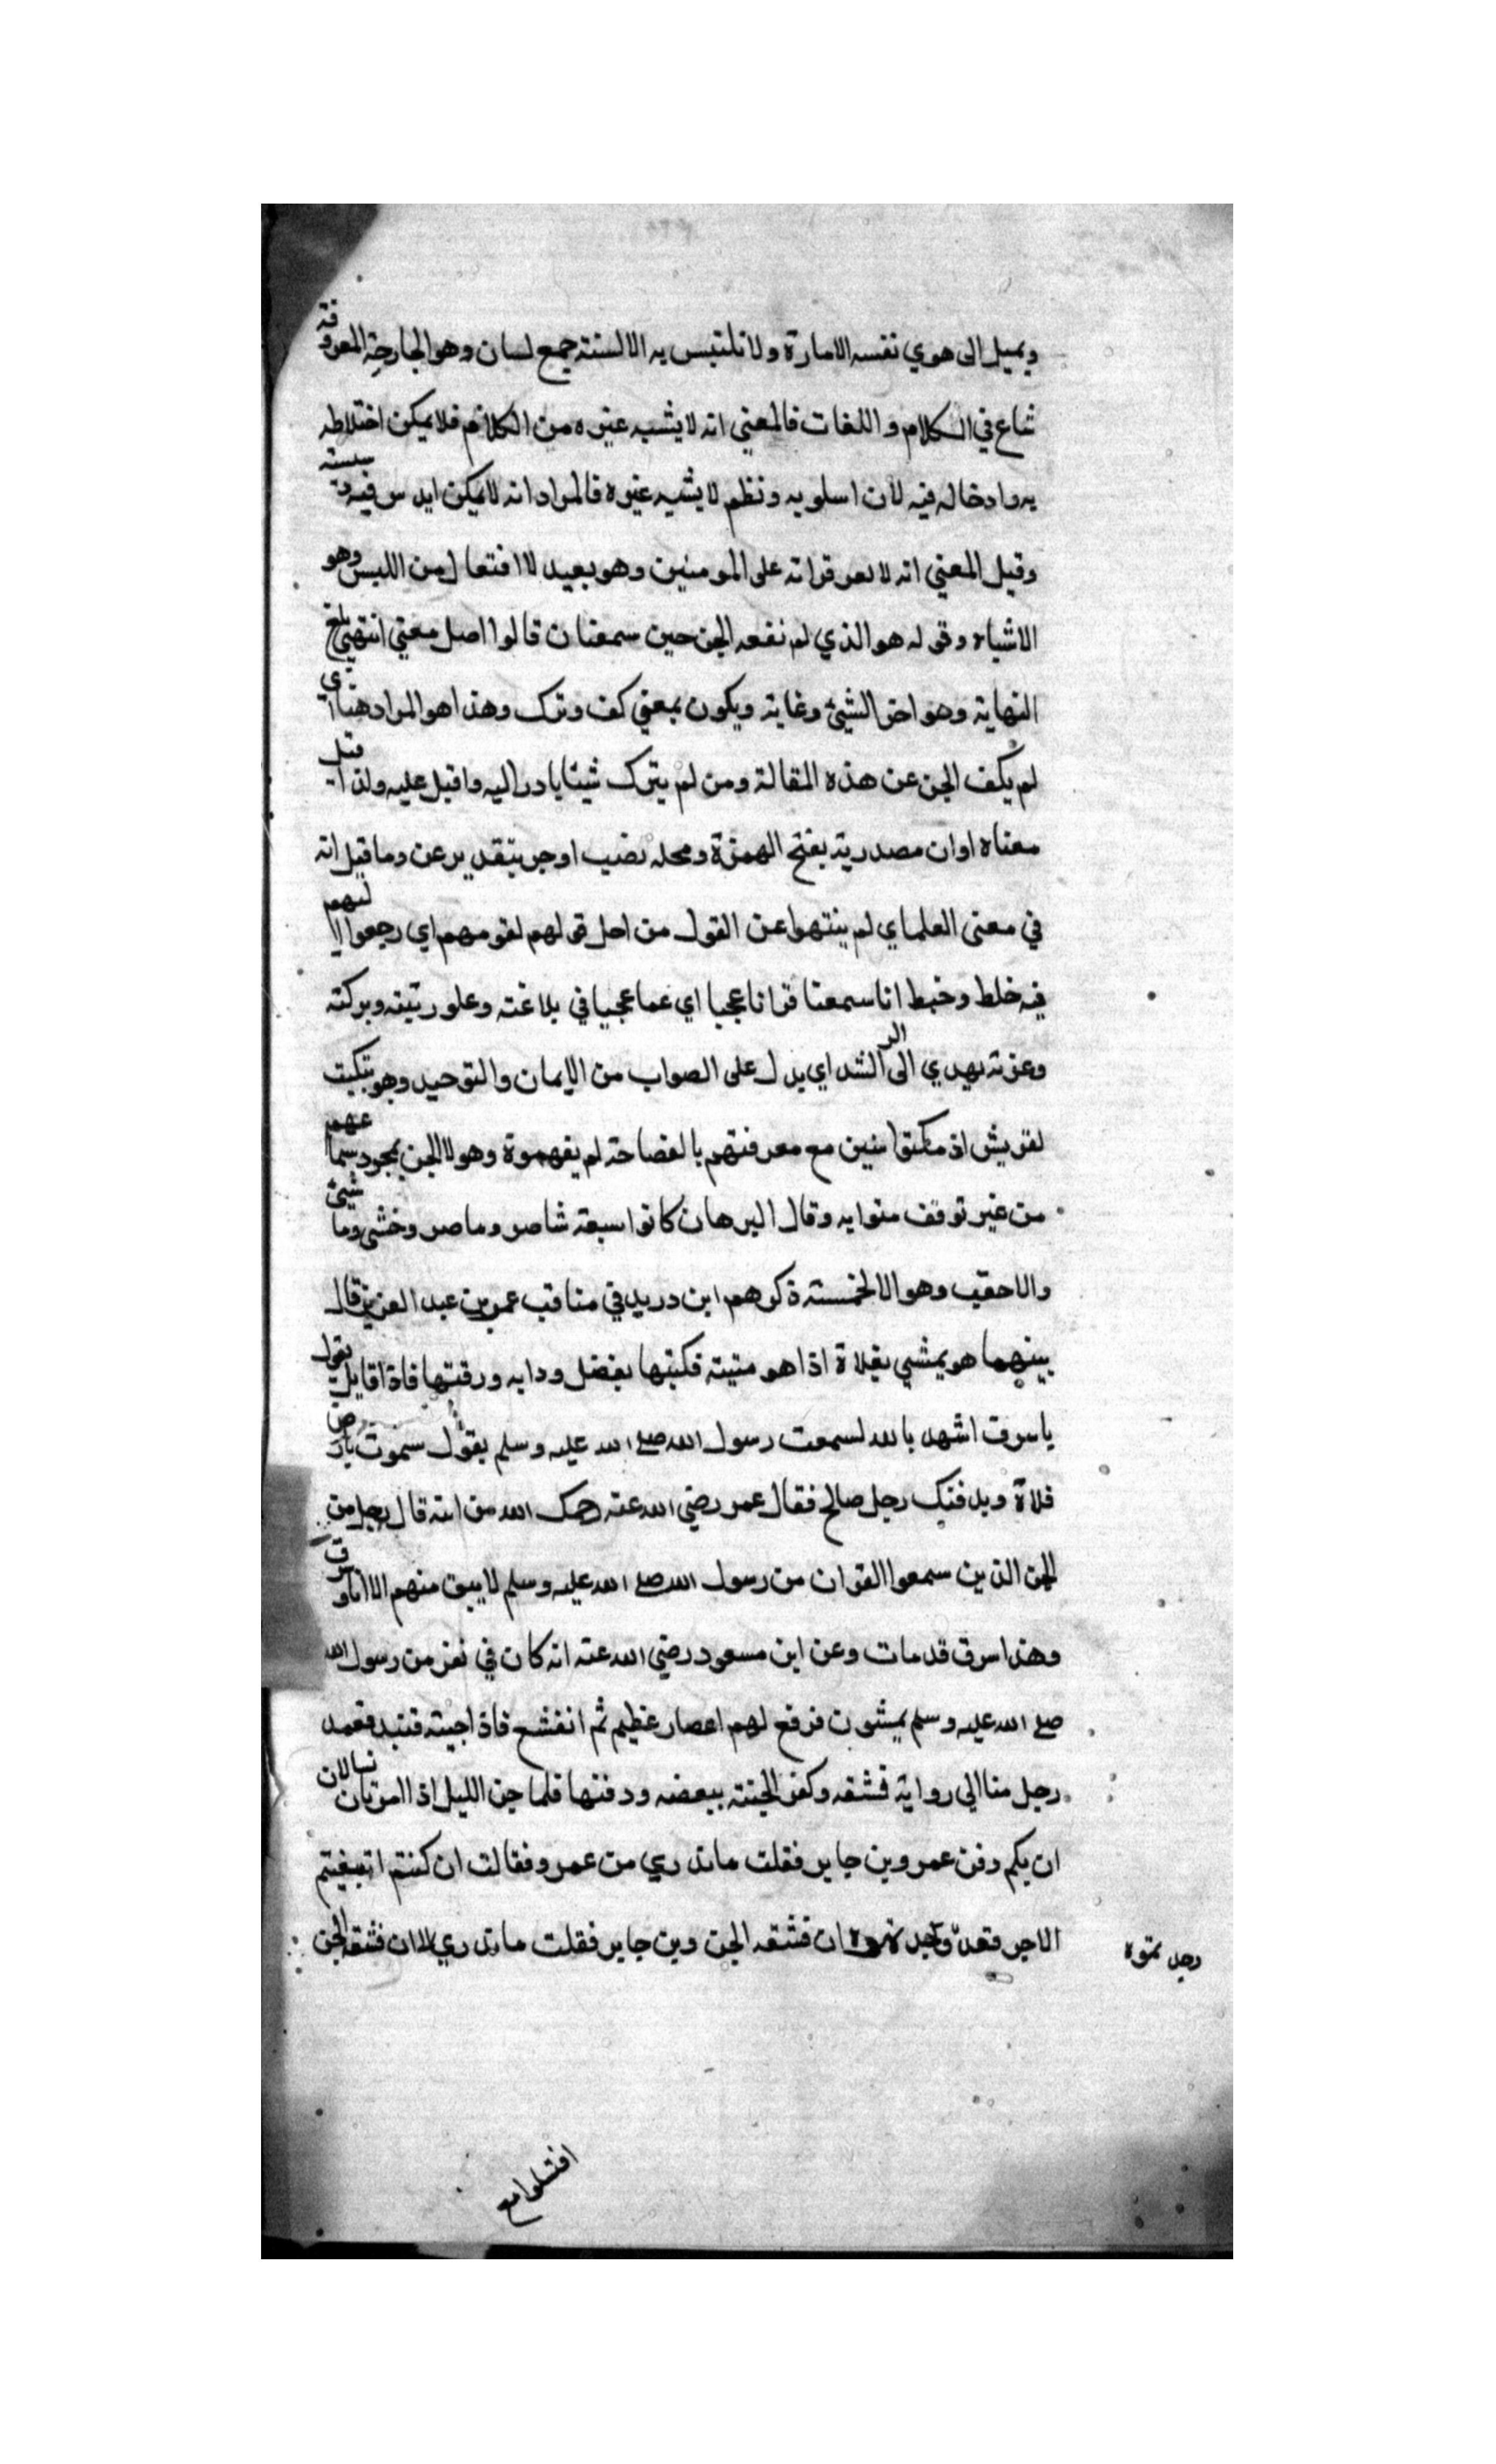 ويميل الى هوي نفسه الامارة ولا تلتبس به الالسنة جمع لسان وهو الجارحة المعروفة
شاع في الكلام واللغات فالمعني انه لا يشبه غيره من الكلام فلا يمكن اختلاطه
به وادخاله فيه لان اسلوبه ونظم لا يشبه غيره فالمراد انه لا يمكن ايد س فيه دسيسته
وقيل المعني انه لا لعو قراته على المومنين وهو بعيد لا افتعال من اللبس وهو
الاشياه وقوله هو الذي لم نفعه الجن حين سمعنا ن قالوا اصل معني انتهي بلغ
النهاية وهو اخر الشيئ وغاية ويكون بمعني كف وترك وهذا هو المراد هنا اي
لم يكف الجن عن هذه المقالة ومن لم يترك شيئا بادر اليه واقبل عليه ولذا قيل
معناه اوان مصدرية بفتح الهمزة ومحله نصب او جر بتقدير عن وما قيل انه
في معنى العلماي لم ينتهوا عن القول من احل قولهم لقومهم اي رجعوا اليهم
فيه خلط وخبط انا سمعنا قرانا عجبا اي عما عجيبا في بلاغته وعلو رتبته وبركته
وعزته يهدي الى الرشد اي يدل على الصواب من الايمان والتوحيد وهو تبكيت
لقريش اذ مكثوا سنين مع معرفتهم بالفصاحة لم يفهموة وهولا الجن بمجرد سماعهم
من غير توقف منوا به وقال البرهان كانوا سبعة شاصر وماصر وخشي وما شيئ
والاحقب وهوالا الخمسة ذكرهم ابن دريد في مناقب عمر بن عبد العزيز قال
بينهما هو يمشي بفلاة اذا هو متيته فكبنها بفضل ودايه ورقنتها فاذا قايل يقول
ياسرق اشهد بالله لسمعت رسول الله صلى الله عليه وسلم يقول سموت بارض
فلاة ويدفنك رجل صالح فقال عمر رضي الله عنه رحمك الله من انته قال رجل من
الجن الذين سمعوا القران من رسول الله صلى الله عليه وسلم لا يبق منهم الا انا وسرق
وهذا سرق قد مات وعن ابن مسعود رضي الله عنه انه كان في نفر من رسول الله
صلى الله عليه وسلم يمشون فرفع لهم اعصار عظيم ثم انقشع فاذا جيته قتيد فعمد
رجل منا الي روايه فشقه وكفن الجنته ببعضه ودفنها فلما جن الليل اذا امرتان تسالان
ان يكم دفن عمرو بن جابر فقلت ما ندري من عمرو فقالت ان كنتم ابتغيتم
الاجر فقد وجد ان فشقه الجن وبن جابر فقلت ما ندري الا ان فشقه الجن
رجد تموه
افتتلوا مع